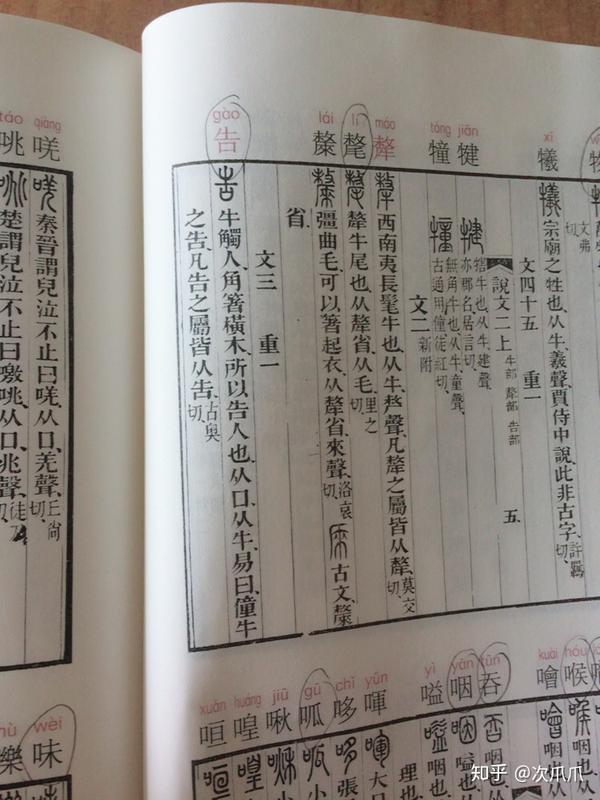 xī
犧
jiān
犍
tóng
犝
máo
犛
lí
氂
lái
斄
gào
告
文弗切
犧 宗廟之牲也、从牛、羲聲、賈侍中說、此非古字、許羈切、
文四十五 重一
說文二上 牛部 犛部 告部 五
犍 犗牛也、从牛、建聲、
亦郡名、居言切、
犝 無角牛也、从牛、童聲、
古通用僮、徒紅切、
文二 新附
犛 西南夷長髦牛也、从牛、𠩺聲、凡犛之屬皆从犛、莫交切、
氂 犛牛尾也、从犛省、从毛、里之切、
斄 彊曲毛、可以箸起衣、从犛省、來聲、洛哀切、 古文斄
省、
文三 重一
告 牛觸人、角箸橫木、所以告人也、从口、从牛、易曰、僮牛
之告、凡告之屬皆从告、古奧切、
kuài
噲
hóu
喉
tūn
吞
yān
咽
yì
嗌
yǔn
喗
chǐ
哆
gū
呱
jiū
啾
huáng
喤
xuǎn
咺
qiàng
唴
táo
咷
唴 秦晉謂兒泣不止曰唴、从口、羌聲、丘尚切、
咷 楚謂兒泣不止曰噭咷、从口、兆聲、徒刀切、
wèi
味
知乎 @次爪爪